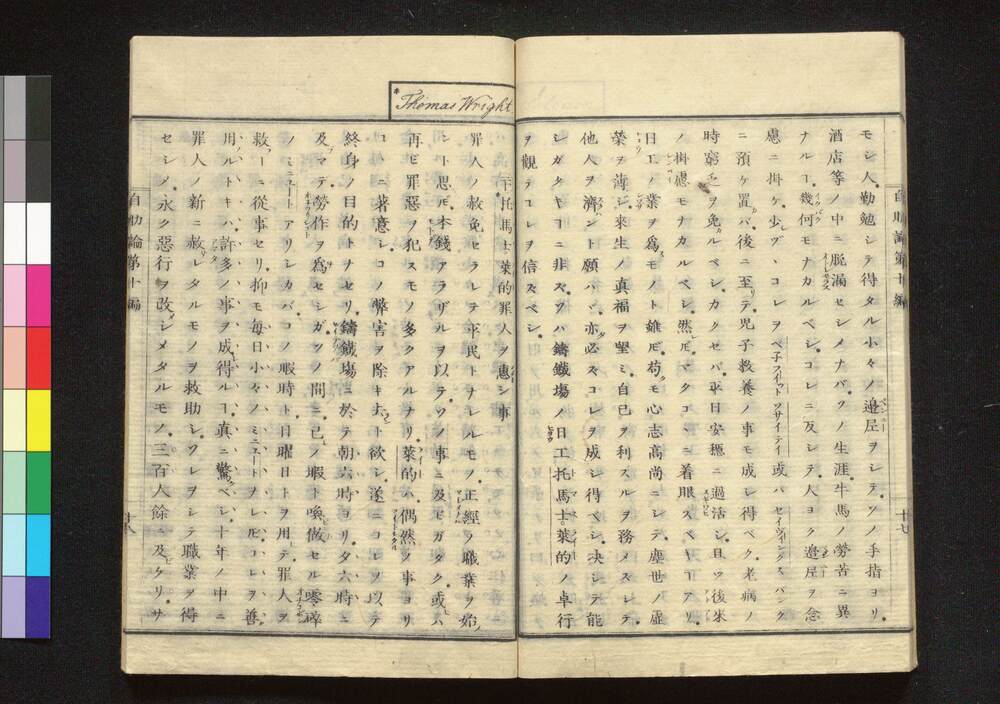 自助論第十編
十七
モシ人勤勉シテ得タル小々ノ邉尼ヲシテ、ソノ手指ヨリ、
酒店等ノ中ニ脱漏セシメナバ、ソノ生涯、牛馬ノ勞苦ニ異
ナルヿ幾何モナカルベシ、コレニ反シテ、人ヨク邉尼ヲ念
慮ニ掛ケ、少ヅヽコレヲベ子フイットソサイテイ或ハセイヴィングスバンク
ニ預ケ置バ、後ニ至リテ兒子教養ノ事モ成シ得ベク、老病ノ
時窮乏ヲ免カルベシ、カクセバ、平日安穩ニ過活シ、且ツ後來
ノ掛慮モナカルベシ、然レ𪜈マタコヽニ着眼スベキヿアリ、
日工ノ業ヲ爲スモノト雖𪜈、苟モ心志高尚ニシテ、塵世ノ虚
榮ヲ薄シ、來生ノ眞福ヲ望ミ、自己ヲ利スルヲ務メズシテ、
他人ヲ濟ハント願ハヾ、亦必ズコレヲ成シ得ベシ、决シテ能
シガタキヿニ非ズ、ソハ鑄鐵場ノ日工托馬士萊的ノ卓行
ヲ觀テコレヲ信ズベシ、
*Thomas Wright
十 托馬士萊的罪人ヲ惠シ事
罪人ノ赦免セラレテ平民トナレルモノ、正經ノ職業ヲ始
ント思𪜈、本錢アラザルヲ以テ、ソノ事ニ及ビガタク、或ハ
再ビ罪惡ヲ犯スモノ多クアルナリ、萊的ハ、偶然ノ事ヨリ
コヽニ著意シ、コノ弊害ヲ除キ去ント欲シ、遂ニコレヲ以テ
終身ノ目的トナセリ、鑄鐵場ニ於テ、朝六時ヨリ夕六時ニ
及マデ、勞作ヲ爲セシガ、ソノ間ニ、己ノ暇ト喚做セル零碎
ノミニュートアリシカバ、コノ暇時ト日曜日トヲ用テ、罪人ヲ
救フヿニ從事セリ、抑モ毎日小々ノミニュートヲレ𪜈、コレヲ善
用ルトキハ、許多ノ事ヲ成得ルヿ、眞ニ驚ベシ、十年ノ中ニ
罪人ノ新ニ赦レタルモノヲ救助シ、ソレヲシテ職業ヲ得
セシメ、永ク惡行ヲ改メシメタルモノ、三百人餘ニ及ケリ、サ
自助論第十編
十八